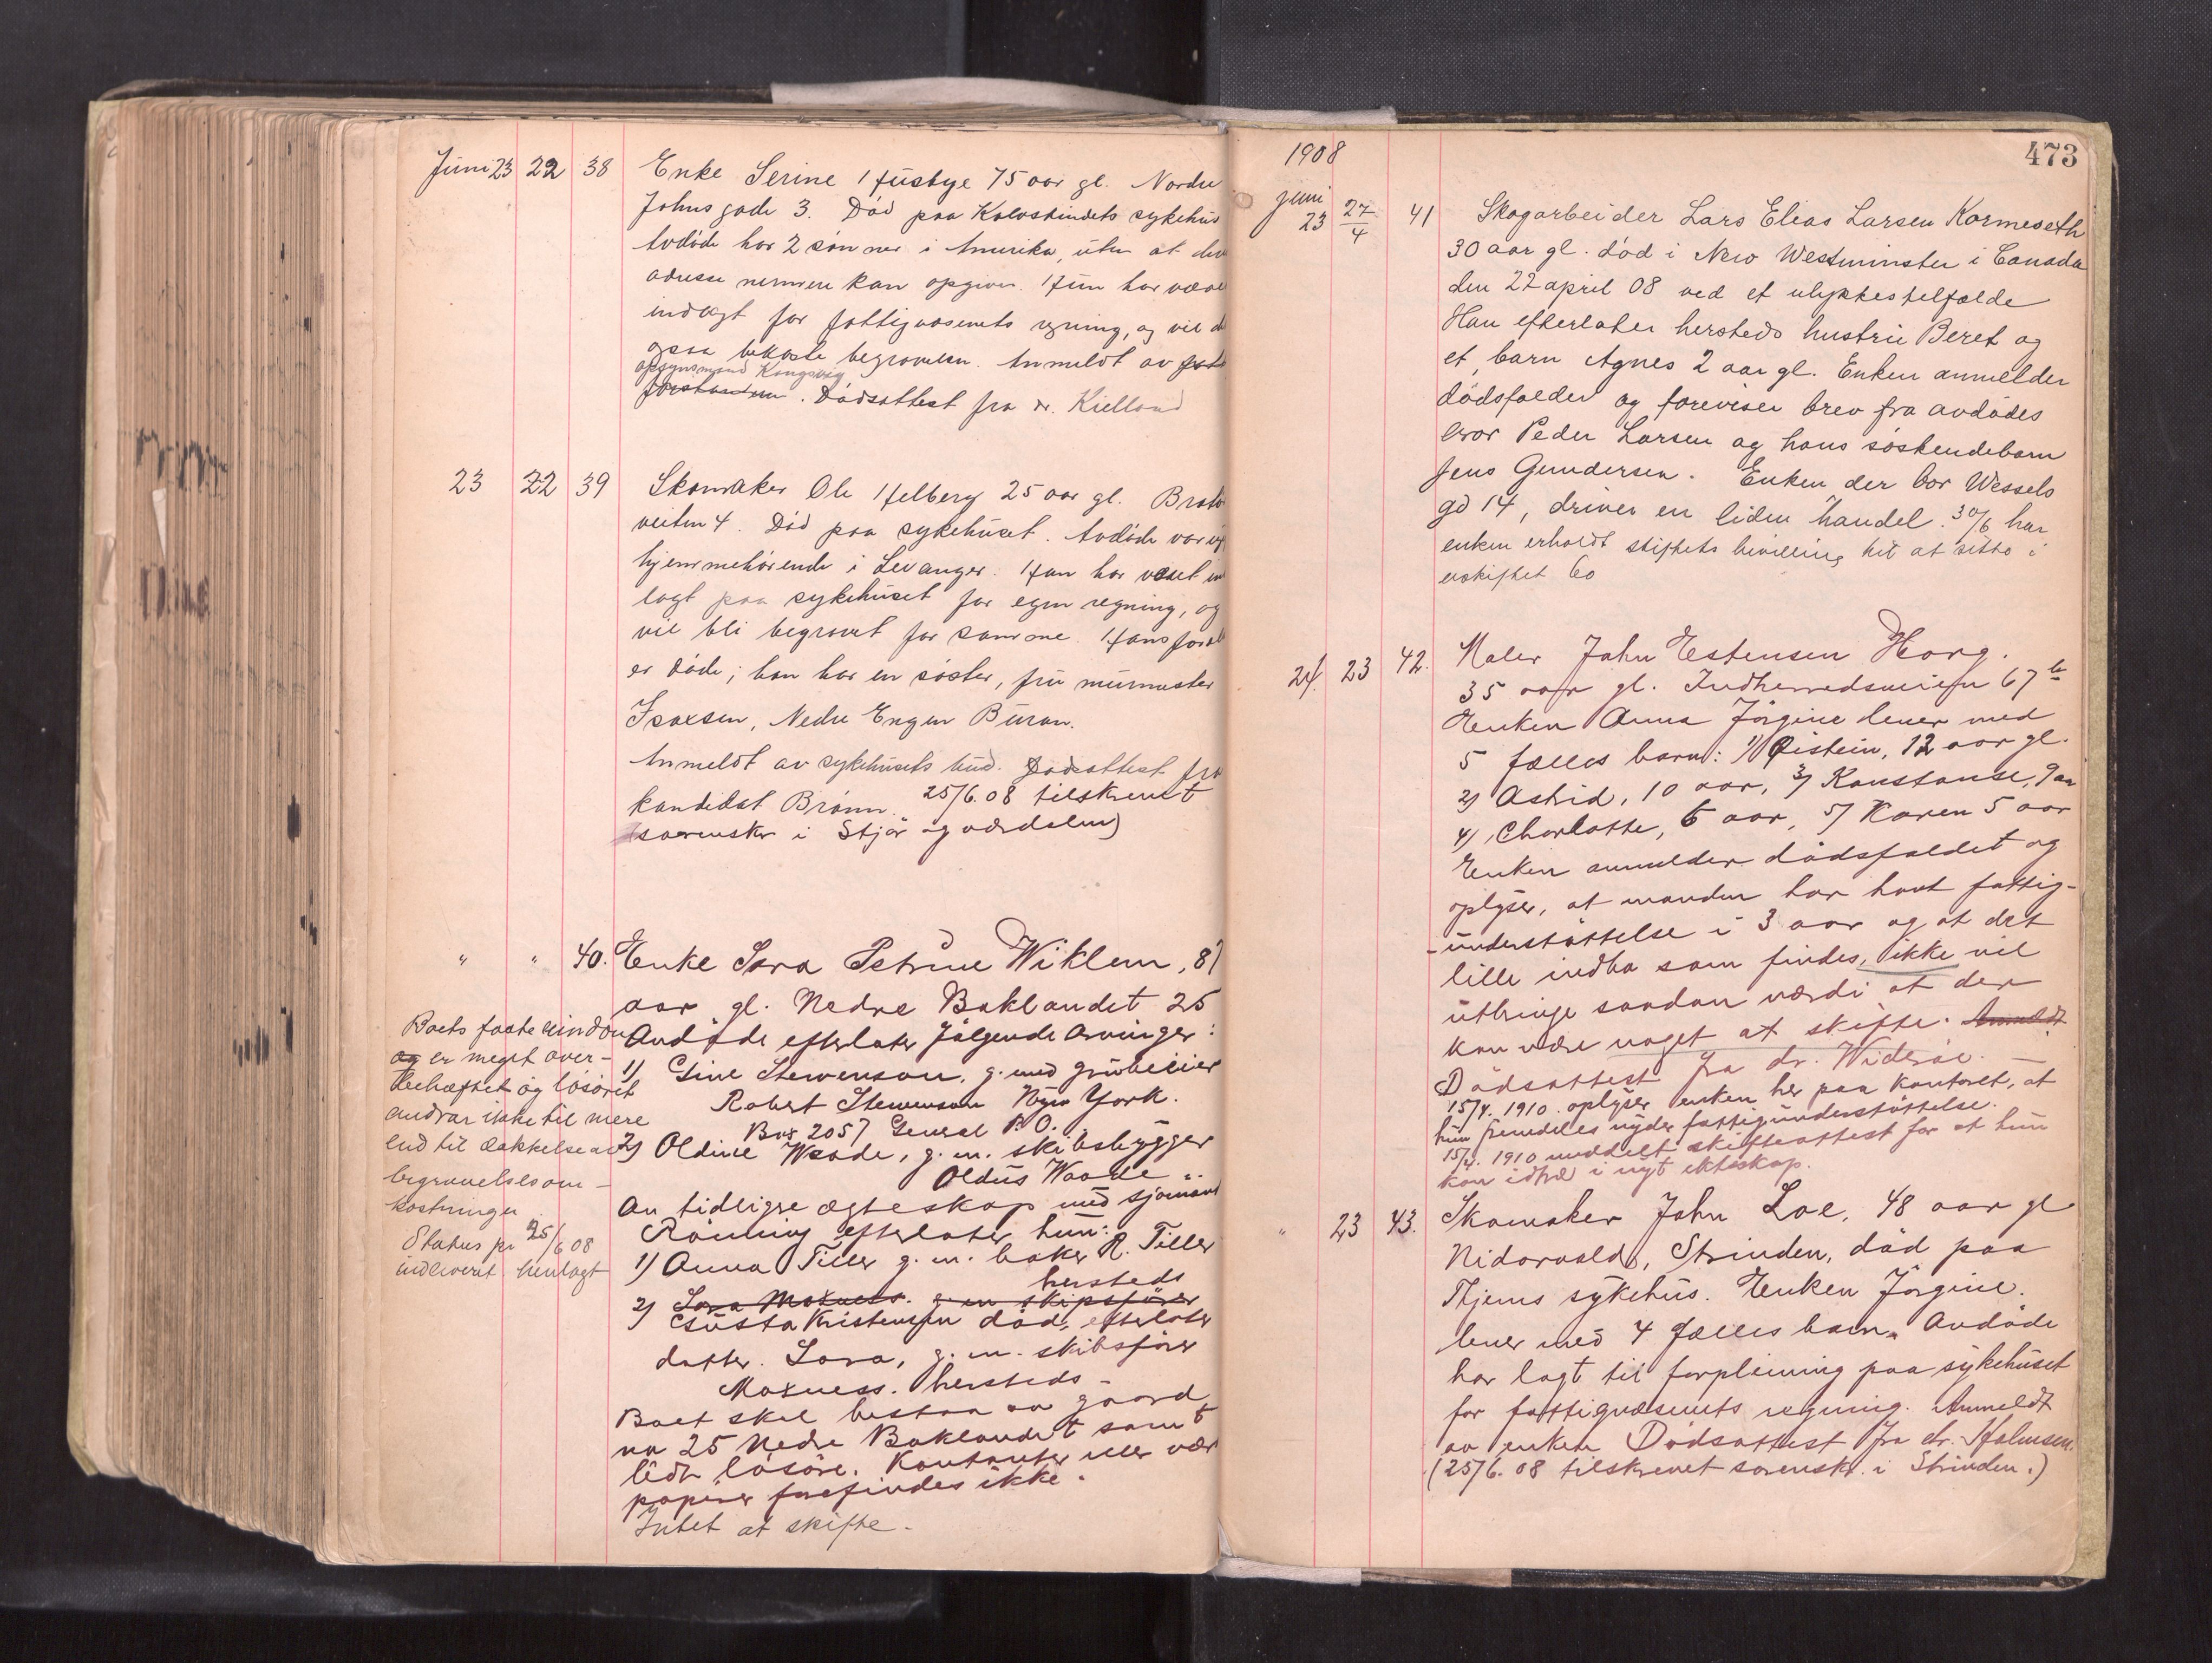 Juni 23 22 38 Enke Serine Husbye 75 aar gl. Nordre
Johnsgade 3. Död paa Kalvskindets sykehus
Avdöde har 2 sönner i Amerika, uten at deres
adresse nermere kan opgives. Hun har været
indlagt for fattigvæsenets regning, og vil d
ogsaa bekoste begravelsen. Anmeldt av
opsynsmand Kongsvig
forstanderen. Dödsattest fra dr. Kielland
23 22 39 Skomaker Ole Helberg 25 aar gl. Brat
veiten 4. Död paa sykehuset. Avdöde var ug
hjemmehörende i Levanger. Han har været ind
lagt paa sykehuset for egen regning, og
vil bli begravet for samme. Hans foræl
er döde; han har en söster, fru murmester
Isaxsen, Nedre Enger Buran.
Anmeldt av sykehusets bud. Dödsattest fra
kandidat Brönn. 25/6.08 tilskrevet
(sorensker i Stjör og værdalen)
" " 40. Enke Sara Petrine Wiklem, 81
aar gl. Nedre Baklandet 25
Avdöde efterlater fölgende arvinger:
1) Gine Stevenson, g. med grubeeier
Robert Stevenson New York.
Box 2057 General P.O.
2) Oldine Waade, g. m. skibsbygger
Oldus Waade "
Av tidligre ægteskap med sjömand
Rönning efterlater hun:
1) Anna Tiller g. m. baker R. Tiller
hersteds
2) Sara Moxness. g m skipsförer
Gusta Kristensen död, efterlater
datter. Sara, g. m. skibsförer
Moxness. hersteds -
Boet skal bestaa av gaard
no 25 Nedre Baklandet samt
lidt lösöre. Kontanter eller vær
papirer forefindes ikke.
Intet at skifte.
Boets faste eiendom
og er meget over-
behæftet og lösöret
andrar ikke til mere
end til dækkelse av
begravelsesom-
kostninger
Status pr 25/6 08
indleveret henlagt
473
1908
juni
23 27/4 41 Skogarbeider Lars Elias Larsen Kormeseth
30 aar gl. död i New Westminster i Canada
den 27 april 08 ved et ulykkestilfælde
Han efterlater hersteds hustru Beret og
et barn Agnes 2 aar gl. Enken anmelder
dödsfaldet og foreviser brev fra avdödes
bror Peder Larsen og hans söskendebarn
Jens Gundersen. Enken der bor Wessels
gd 14, driver en liden handel. 30/6 har
enken erholdt stiftets bevilling til at sitte i
uskiftet bo
24. 23 42. Maler John Estensen Horg.
35 aar gl. Indherredsveien 67 b
Enken Anna Jörgine lever med
5 fælles barn: 1) Øistein, 12 aar gl.
2) Astrid, 10 aar, 3) Konstanse, 9 aar
4) Charlotte, 6 aar, 5) Karen 5 aar
Enken anmelder dödsfaldet og
oplyser, at manden har havt fattig-
-understöttelse i 3 aar og at det
lille indbo som findes, ikke vil
utbringe saadan værdi at der
kan være noget at skifte. Anmeldt
Dödsattest fra dr. Wideröe. -
15/4. 1910. oplyser enken her paa kontoret, at
hun fremdeles nyder fattigunderstöttelse.
15/4. 1910 meddelt skifteattest for at hun
kan idtræ i nyt ekteskap.
" 23 43. Skomaker John Loe, 48 aar gl
Nidarvold, Strinden, död paa
Thjems sykehus. Enken Jörgine.
lever med 4 fælles barn. Avdöde
har lagt til forpleining paa sykehuset
for fattigvæsenets regning. Anmeldt
av enken Dödsattest fra dr. Holmsen.
(25/6.08 tilskrevet sorenskr. i Strinden.)